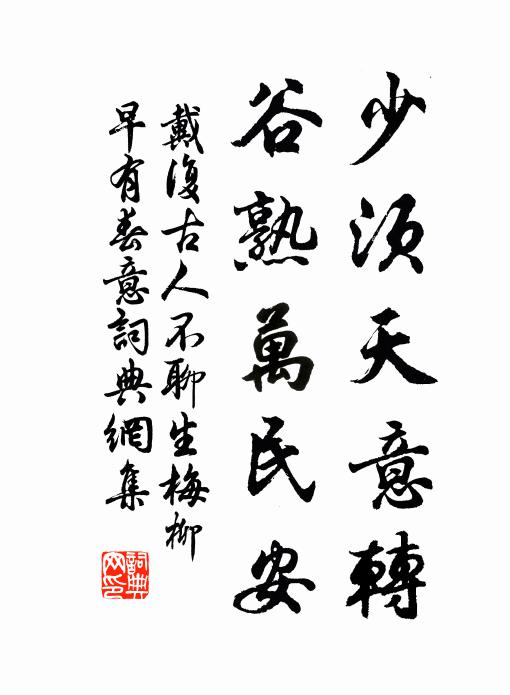 少須天意轉
谷熟萬民安
戴復古人不聊生梅柳
早有春意詞典網集
詞典
网印